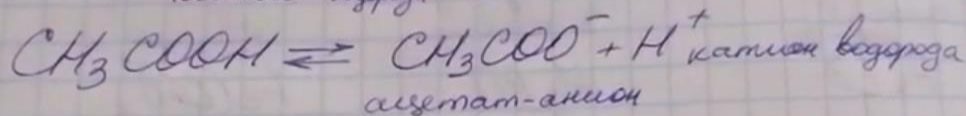 CH₃COOH ⇌ CH₃COO⁻ + H⁺ катион водорода
ацетат-анион